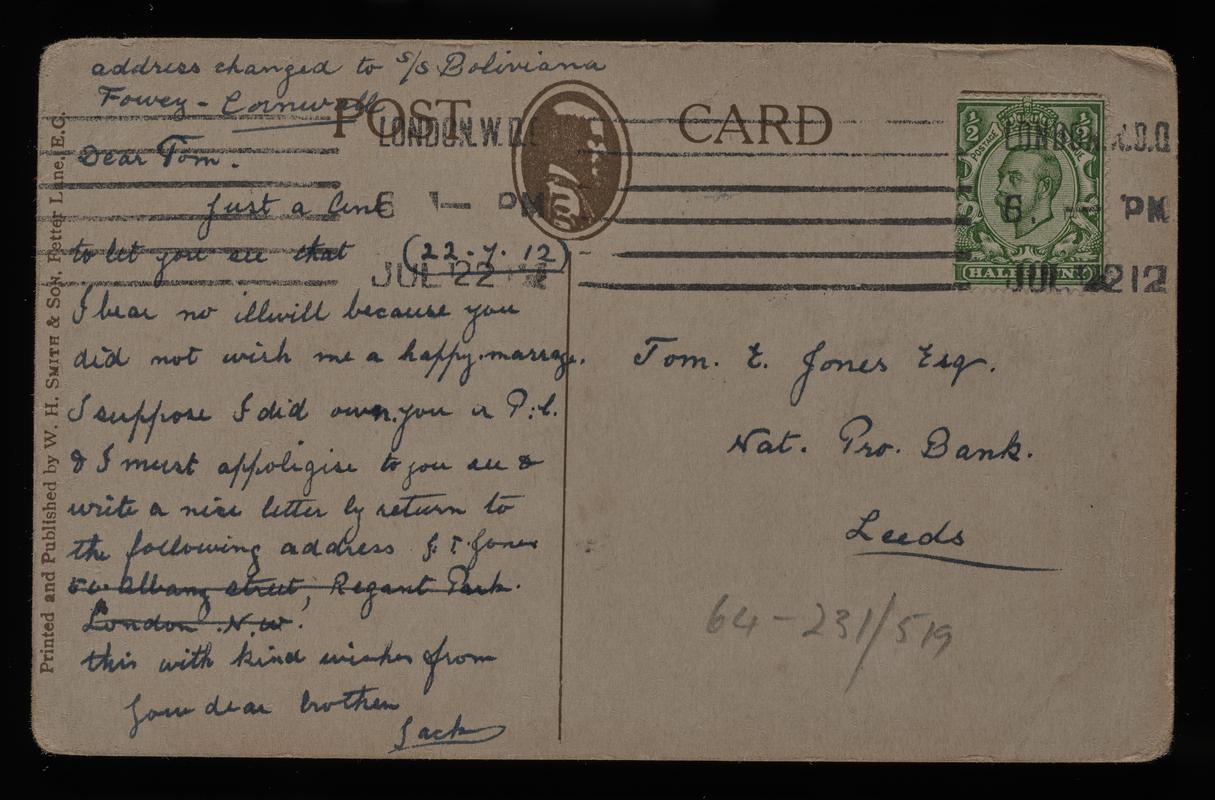 address changed to S/S Boliviana
Fowey - Cornwall
POST CARD
LONDON.W.D.O
6. — PM
JUL 22 12
LONDON.W.D.O
6. — PM
JUL 22 12
½ POSTAGE ½
HALFPENNY
Dear Tom.
Just a line
to let you see that (22.7.12)
I bear no illwill because you
did not wish me a happy marrage.
I suppose I did own you a P.C.
& I must appoligise to you see &
write a nice letter by return to
the following address J. T. Jones
50 Albany street, Regant Park.
London. N.W.
this with kind wishes from
your dear brother
Jack
Tom. E. Jones Esq.
Nat. Pro. Bank.
Leeds
64-231/519
Printed and Published by W. H. SMITH & SON, Fetter Lane, E.C.